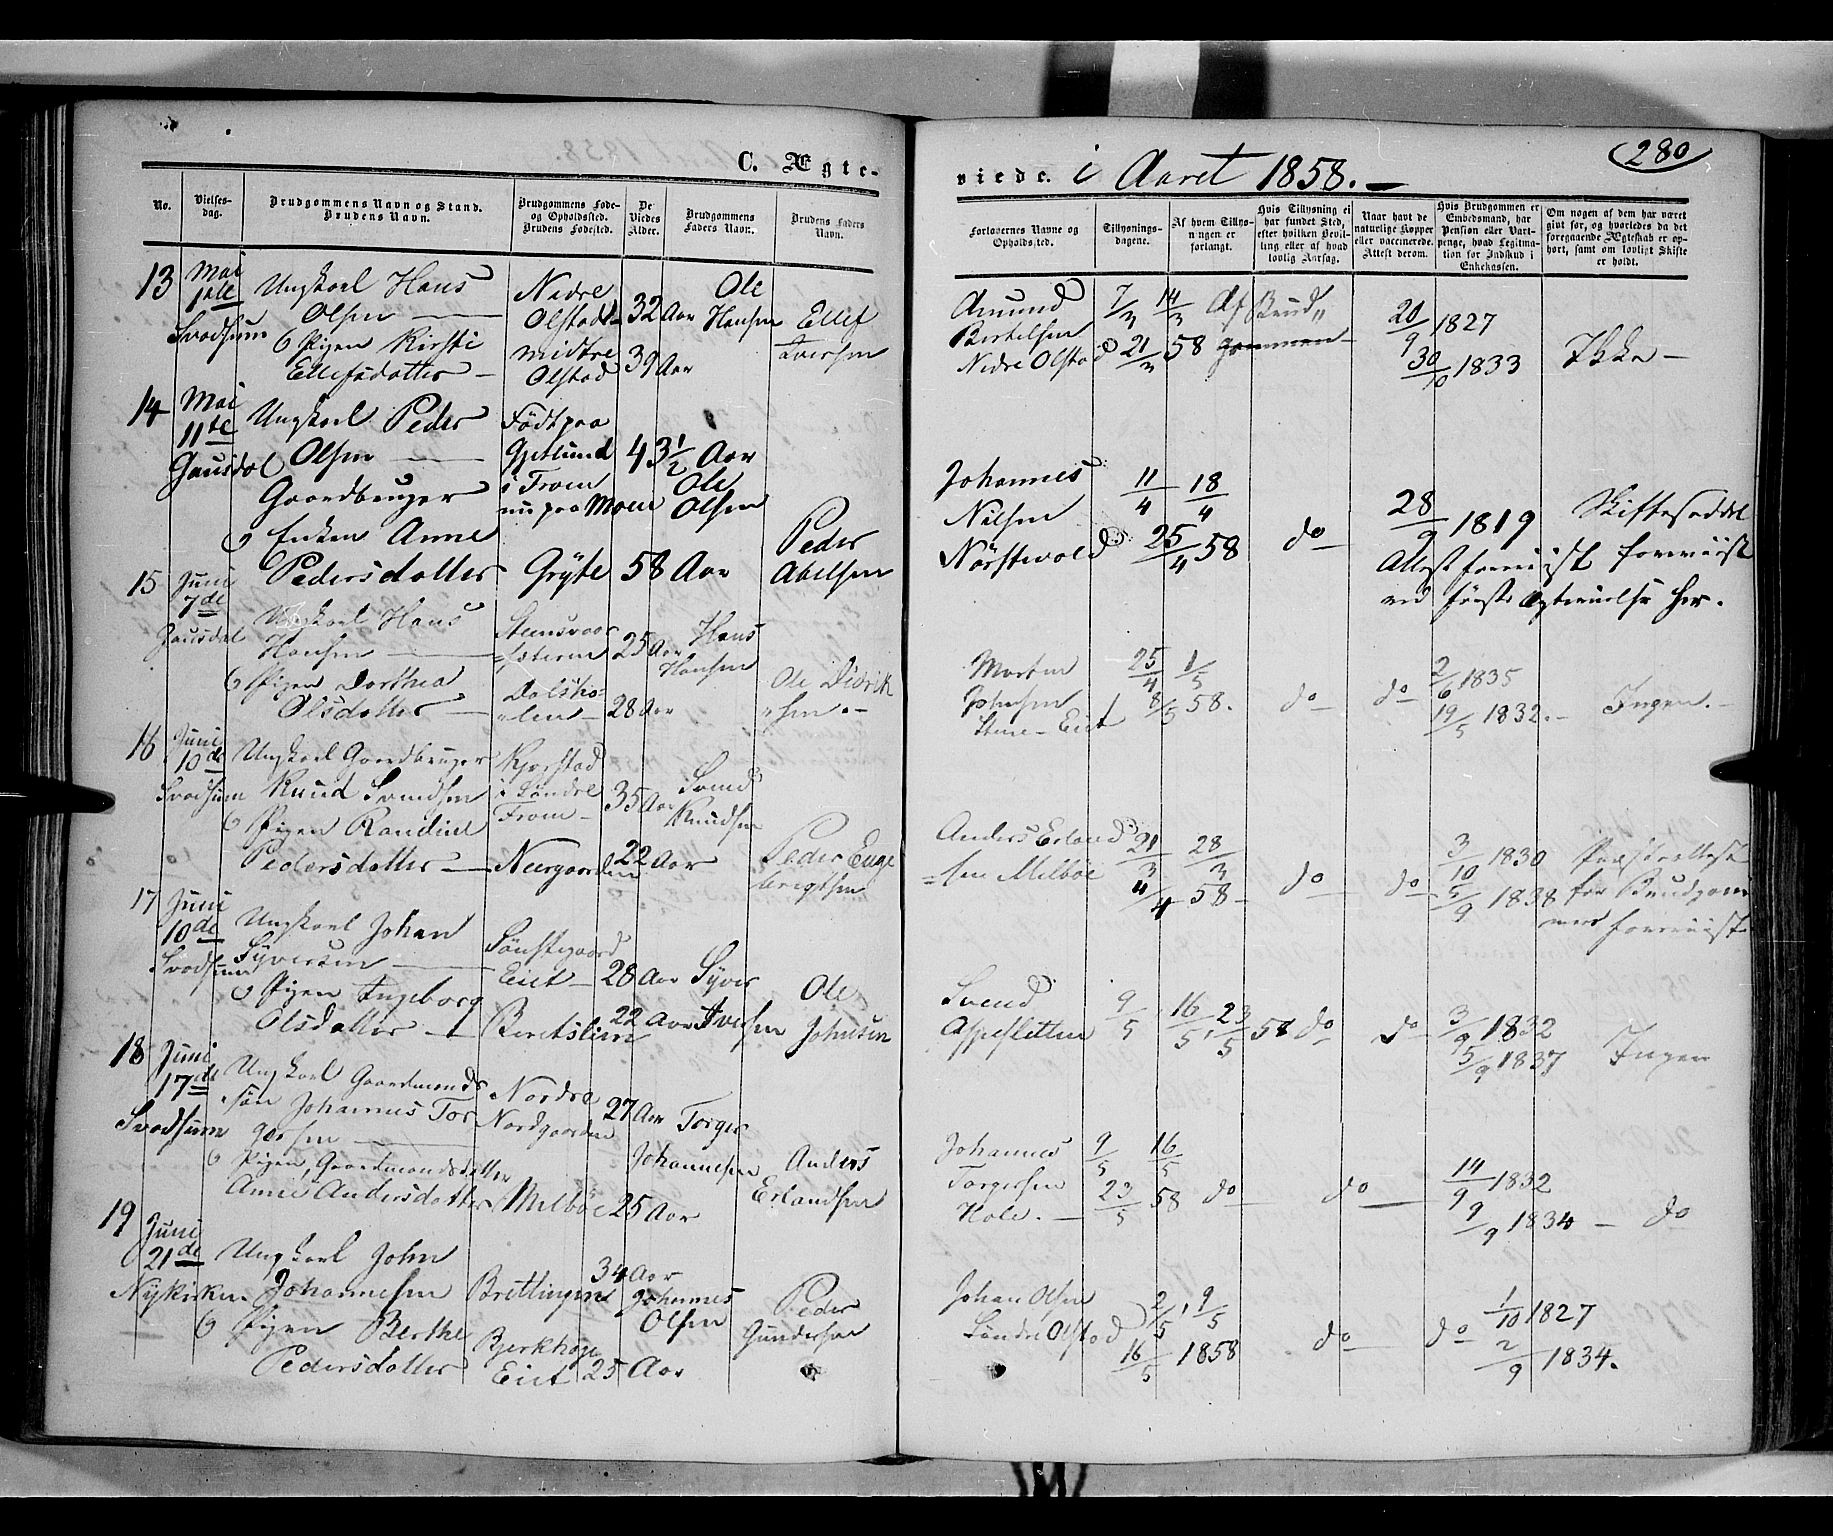 280
C. Ægte-
viede. i Aaret 1858.
No.
Vielses-
dag.
Brudgommens Navn og Stand.
Brudens Navn.
Brudgommens Føde-
og Opholdssted.
Brudens Fødested.
De
Viedes
Alder.
Brudgommens
Faders Navn.
Brudens Faders
Navn.
Forlovernes Navne og
Opholdssted.
Tillysnings-
dagene.
Af hvem Tillys-
ningen er
forlangt.
Hvis Tillysning ei
har fundet Sted,
efter hvilken Bevil-
ling eller af hvad
lovlig Aarsag.
Naar havt de
naturlige Kopper
eller vaccinerede.
Attest derom.
Hvis Brudgommen er
Embedsmand, har
Pension eller Vart-
penge, hvad Legitima-
tion for Indskud i
Enkekassen.
Om nogen af dem har været
givt før, og hvorledes da det
foregaaende Ægteskab er op-
hørt, samt om lovligt Skifte
er holdt.
13 Mai 1ste Svodsum
Ungkarl Hans
Olsen
Nedre
Olstad 32 Aar
Ole
Hansen
Pigen Kirsti
Ellefsdatter
Midtre
Olstad 39 Aar
Ellef
Iversen
Amund
Bertelsen
Nedre Olstad
7/3 14/3
21/3 58
Af Brud„
gommen
20/9 1827
30/10 1833
Ikke
14 Mai 11te Gausdal
Ungkarl Peder
Olsen
Gaardbruger
Født paa
Gjetlund
i Fron
nu paa Moen
43 1/2 Aar
Ole
Olsen
Enken Anne
Pedersdatter
Gryte 58 Aar
Peder
Abelsen
Johannes
Nilsen
Nørstevold
11/4 18/4
25/4 58
do
28/9 1819
Attest foreviist
ved første Ægtevielse her.
Skifteseddel
foreviist
15 Juni 7de Gausdal
Ungkarl Hans
Hansen
25 Aar
Hans
Hansen
Pigen Dorthea
Olsdatter
28 Aar
Ole Didrik
sen
Morten
Stene-Eiet
25/4 1/5
8/5 58.
do do
2/6 1835
19/5 1832.
Ingen.
16 Juni 10de Svodsum
Ungkarl Gaardbruger
Knud Svendsen
Kjorstad
i Søndre
Fron
35 Aar
Svend
Knudsen
Pigen Randine
Pedersdatter
Neergaarden
22 Aar
Peder Enge
brigtsen
Anders Erland
sen Melbøe
21/3 28/3
4/4 58
do do
3/10 1830
5/9 1838
Præsteattest
for Brudgom
men foreviist
17 Juni 10de Svodsum
Ungkarl Johan
Syversen
Sønstegaard
Eiet
28 Aar
Syver
Iversen
Pigen Ingeborg
Olsdatter
22 Aar
Ole
Johnsen
Svend
9/5, 16/5, 23/5 58
do do
3/9 1832
5/9 1837
Ingen
18 Juni 17de Svodsum
Ungkarl Gaardmands
søn Johannes Tor
gersen
Nordre
Nordgaarden
27 Aar
Torger
Johannesen
Pigen, Gaardmandsdatter
Anne Andersdatter
Melbøe 25 Aar
Anders
Erlandsen
Johannes
Torgersen
Hole.
9/5 16/5
23/5 58
do do
14/9 1832
9/9 1834
do
19 Juni 21de Nykirken
Ungkarl John
Johannesen
34 Aar
Johannes
Olsen
Pigen Berthe
Pedersdatter
Bjerkhøge
Eiet 25 Aar
Peder
Gundersen
Johan Olsen
Søndre Olstad
2/5, 9/5
16/5 1858
do do
1/10 1827
2/9 1834.